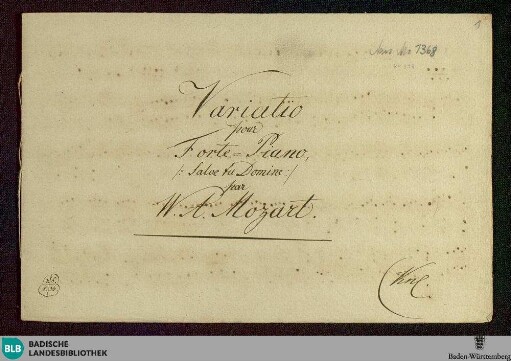 Mus. Ms. 1368
1
Variatio
pour
Forte=Piano,
/: Salve tu Domine :/
par
W. A. Mozart.
BLB BADISCHE
LANDESBIBLIOTHEK
Baden-Württemberg